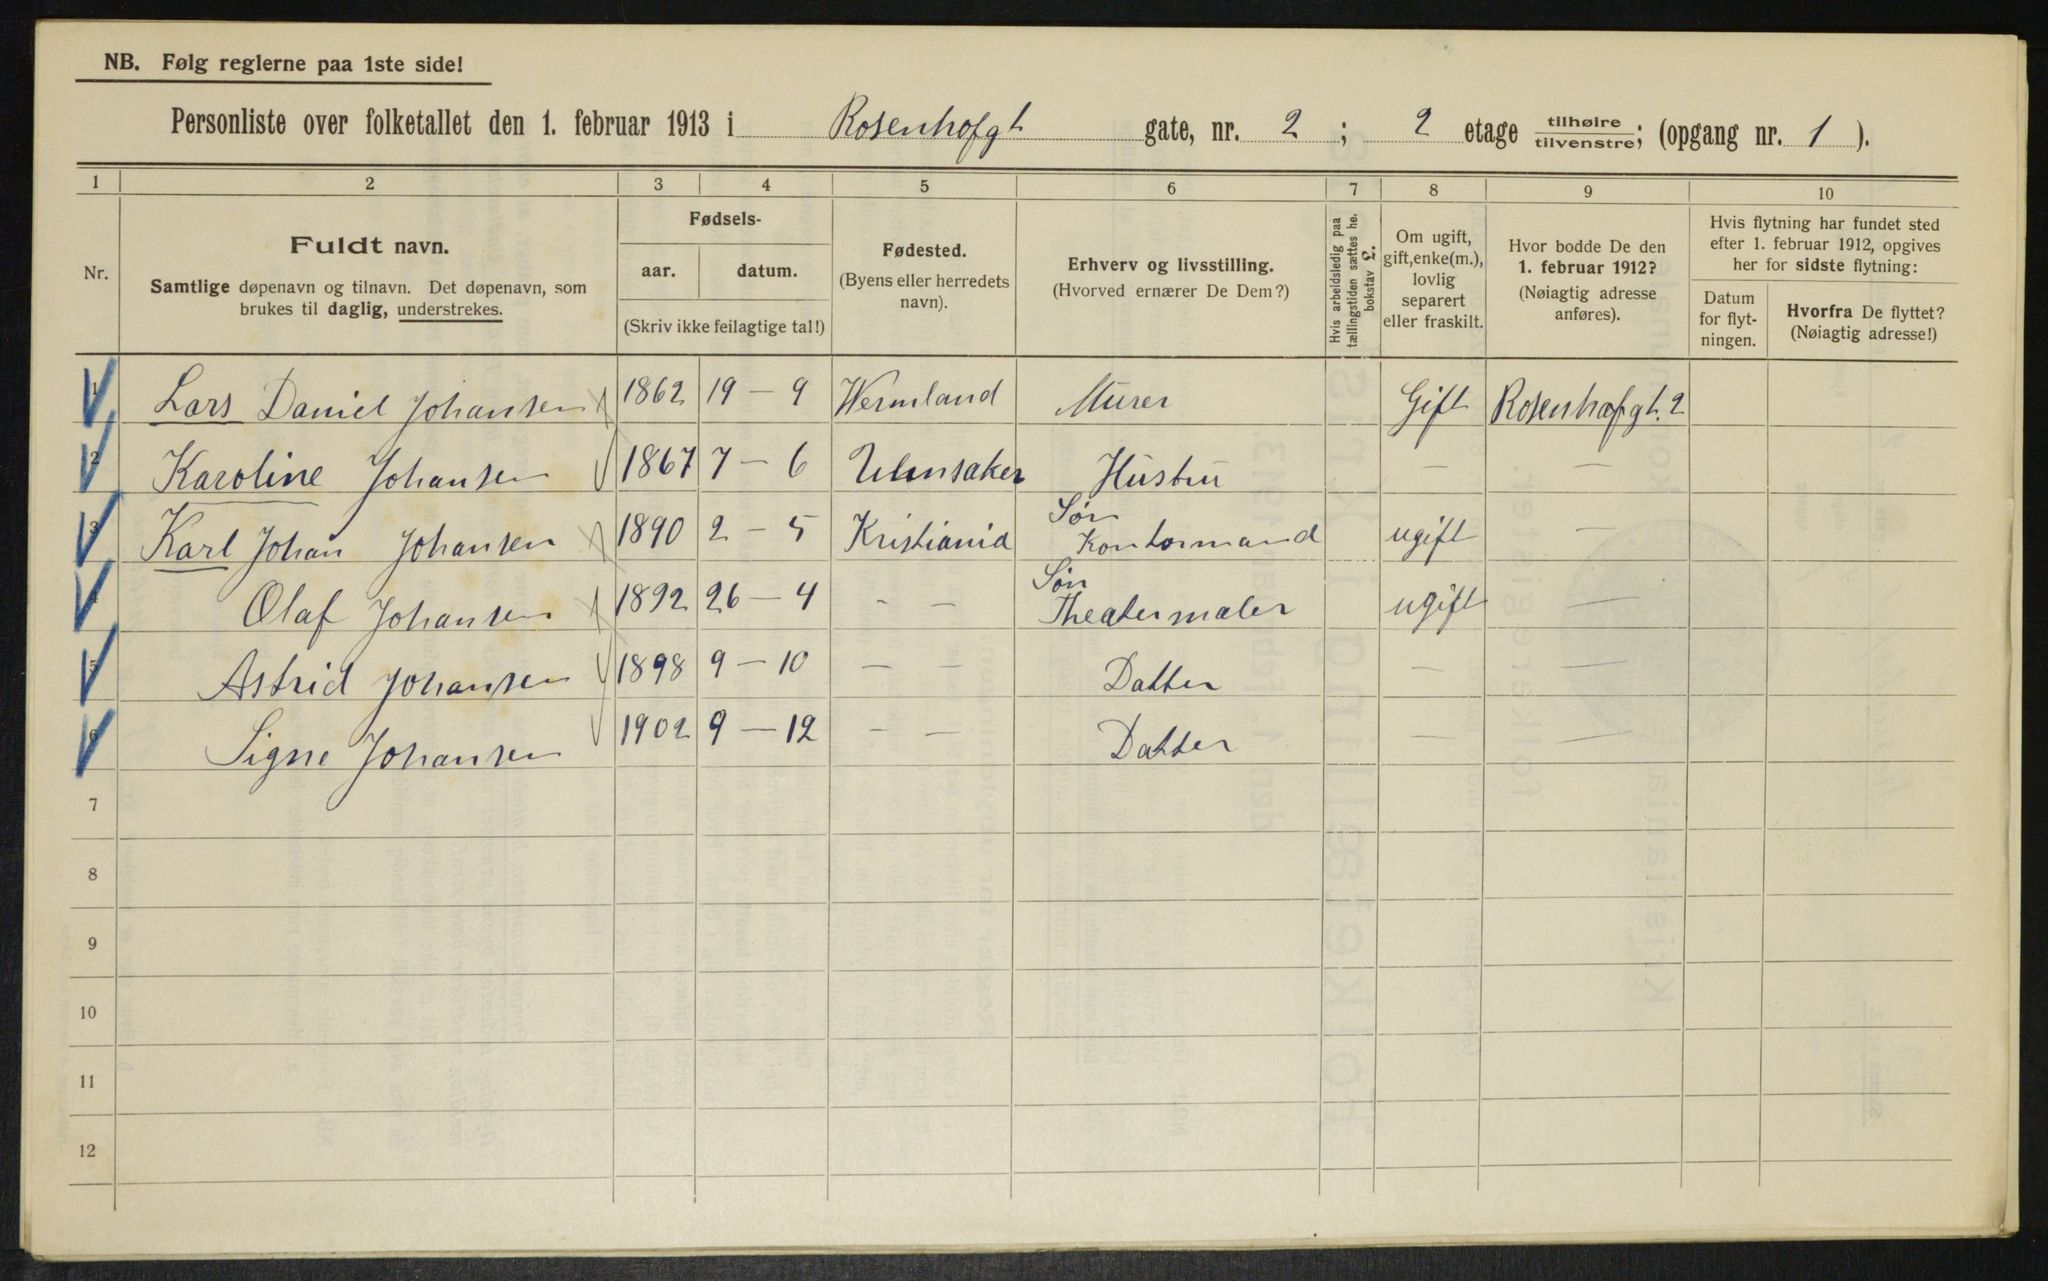 NB. Følg reglerne paa 1ste side!
Personliste over folketallet den 1. februar 1913 i Rosenhofgt gate, nr. 2 ; 2 etage tilhøire/tilvenstre; (opgang nr. 1 ).
1 2 3 4 5 6 7 8 9 10
Nr.
Fuldt navn.
Samtlige døpenavn og tilnavn. Det døpenavn, som
brukes til daglig, understrekes.
Fødsels-
aar. datum.
(Skriv ikke feilagtige tal!)
Fødested.
(Byens eller herredets
navn).
Erhverv og livsstilling.
(Hvorved ernærer De Dem?)
Hvis arbeidsledig paa
tællingstiden sættes he.
bokstav L.
Om ugift,
gift, enke(m.),
lovlig
separert
eller fraskilt.
Hvor bodde De den
1. februar 1912?
(Nøiagtig adresse
anføres).
Hvis flytning har fundet sted
efter 1. februar 1912, opgives
her for sidste flytning:
Datum
for flyt-
ningen.
Hvorfra De flyttet?
(Nøiagtig adresse!)
1 Lars Daniel Johansen 1862 19 – 9 Wermland Murer Gift Rosenhofgt. 2
2 Karoline Johansen 1867 7 – 6 Ulensaker Hustru — —
3 Karl Johan Johansen 1890 2 – 5 Kristiania Søn Kontormand ugift —
4 Olaf Johansen 1892 26 – 4 – – Søn Theatermaler ugift —
5 Astrid Johansen 1898 9 – 10 – – Datter — —
6 Signe Johansen 1902 9 – 12 – – Datter — —
7
8
9
10
11
12